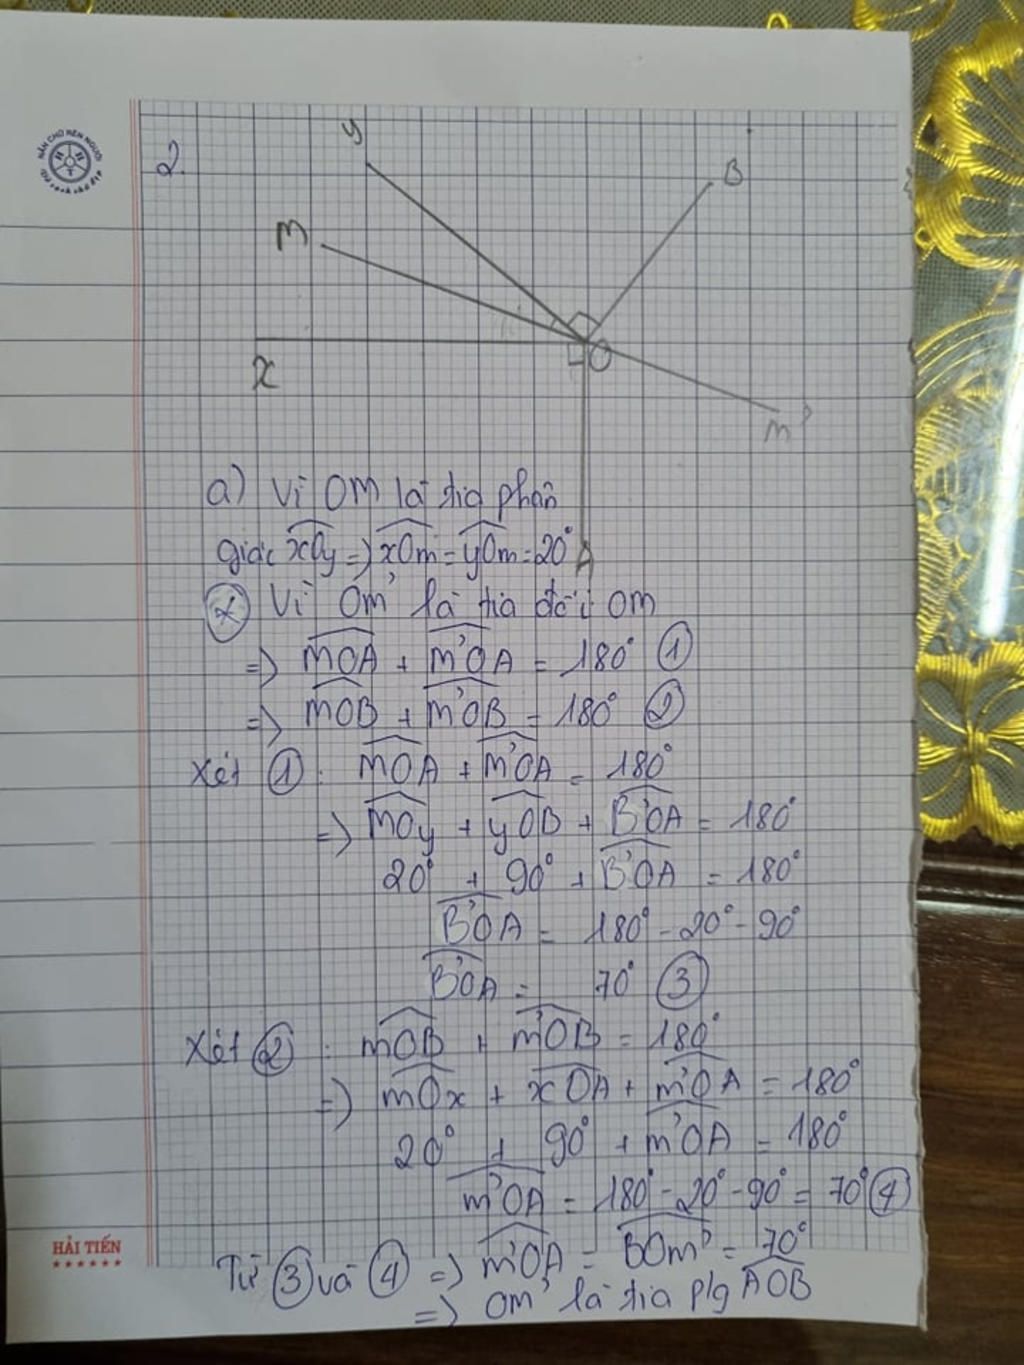 NẮN CHỮ RÈN NGƯỜI
2.
y
B
m
O
x
m'
a) Vì Om là tia phân
giác xOy => xOm = yOm = 20°
A
Vì Om' là tia đối Om
=> mOA + m'OA = 180° ①
=> mOB + m'OB = 180° ②
Xét ①: mOA + m'OA = 180°
=> mOy + yOB + B'OA = 180°
20° + 90° + B'OA = 180°
B'OA = 180° - 20° - 90°
B'OA = 70° ③
Xét ②: mOB + m'OB = 180°
=> mOx + xOA + m'OA = 180°
20° + 90° + m'OA = 180°
m'OA = 180° - 20° - 90° = 70° ④
HẢI TIẾN
Từ ③ và ④ => m'OA = BOm' = 70°
=> Om' là tia p/g AOB